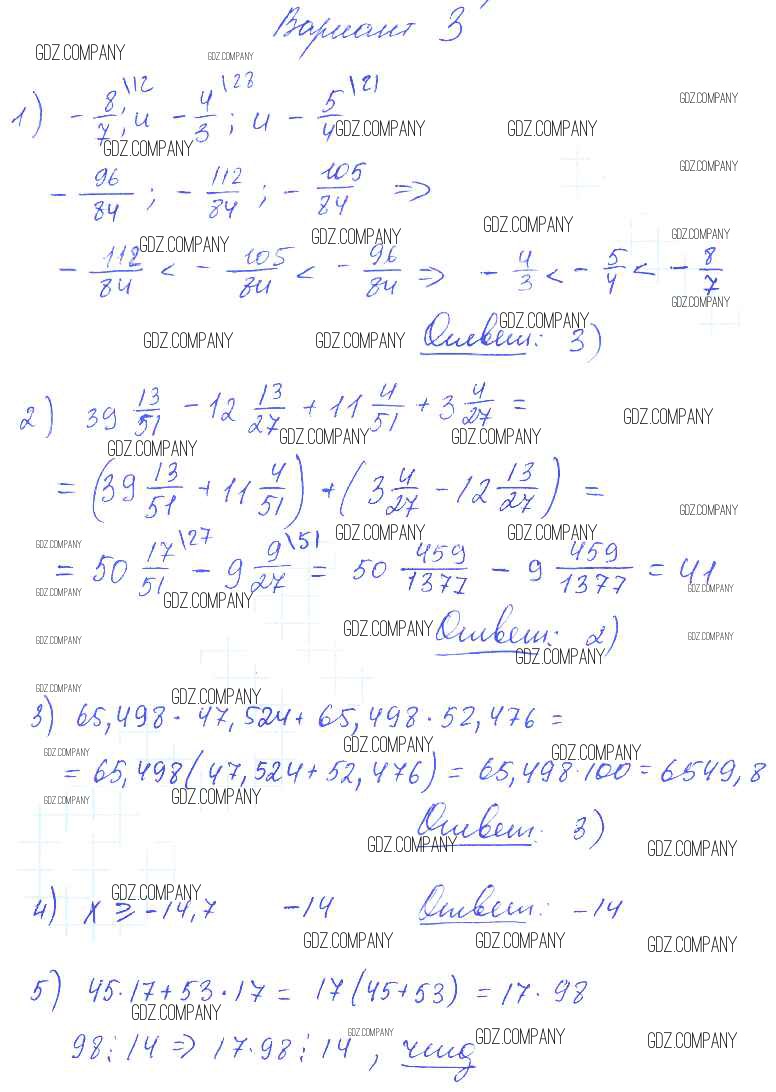 Вариант 3
GDZ.COMPANY GDZ.COMPANY
1) - 8/7 \12; и - 4/3 \28; и - 5/4 \21
GDZ.COMPANY GDZ.COMPANY GDZ.COMPANY GDZ.COMPANY
- 96/84; - 112/84; - 105/84 =>
GDZ.COMPANY
GDZ.COMPANY GDZ.COMPANY GDZ.COMPANY GDZ.COMPANY
- 112/84 < - 105/84 < - 96/84 => - 4/3 < - 5/4 < - 8/7
GDZ.COMPANY
GDZ.COMPANY GDZ.COMPANY GDZ.COMPANY
Ответ: 3)
2) 39 13/51 - 12 13/27 + 11 4/51 + 3 4/27 =
GDZ.COMPANY GDZ.COMPANY GDZ.COMPANY GDZ.COMPANY
= (39 13/51 + 11 4/51) + (3 4/27 - 12 13/27) =
GDZ.COMPANY
GDZ.COMPANY GDZ.COMPANY GDZ.COMPANY
= 50 17/51 \27 - 9 9/27 \51 = 50 459/1377 - 9 459/1377 = 41
GDZ.COMPANY GDZ.COMPANY GDZ.COMPANY
GDZ.COMPANY GDZ.COMPANY GDZ.COMPANY
Ответ: 2)
GDZ.COMPANY
GDZ.COMPANY GDZ.COMPANY
3) 65,498 · 47,524 + 65,498 · 52,476 =
GDZ.COMPANY GDZ.COMPANY GDZ.COMPANY
= 65,498 (47,524 + 52,476) = 65,498 · 100 = 6549,8
GDZ.COMPANY GDZ.COMPANY
Ответ: 3)
GDZ.COMPANY GDZ.COMPANY
GDZ.COMPANY
4) x ⩾ -14,7 -14 Ответ: -14
GDZ.COMPANY GDZ.COMPANY GDZ.COMPANY
5) 45·17 + 53·17 = 17 (45+53) = 17 · 98
GDZ.COMPANY
GDZ.COMPANY GDZ.COMPANY GDZ.COMPANY
98⋮14 => 17·98⋮14, чтд